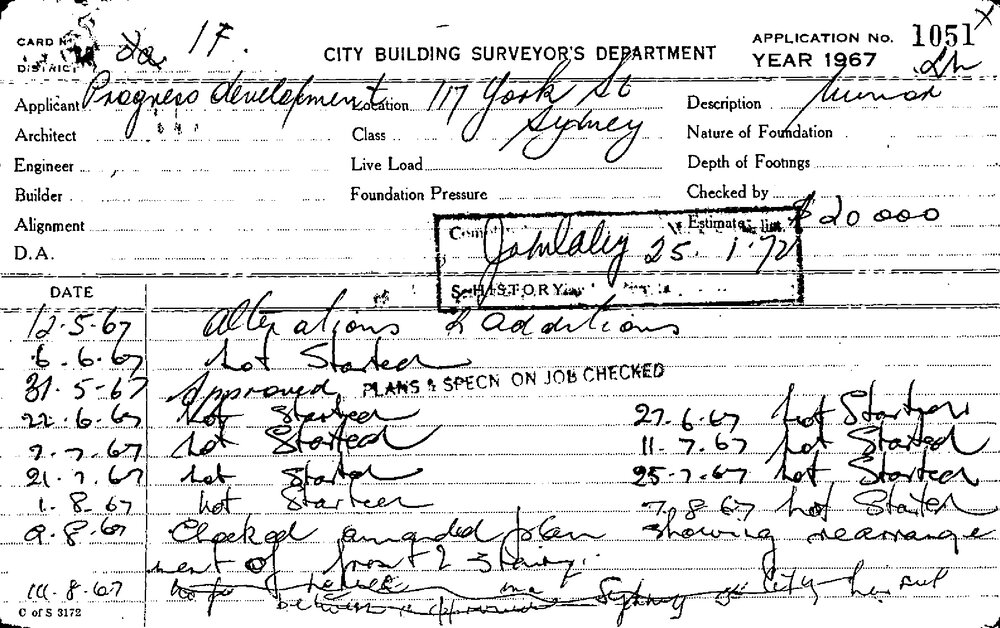 CARD No. 2a 1F. CITY BUILDING SURVEYOR'S DEPARTMENT APPLICATION No. 1051
DISTRICT YEAR 1967
Applicant Progress development Location 117 York St Description
Architect Class Sydney Nature of Foundation
Engineer Live Load Depth of Footings
Builder Foundation Pressure Checked by
Alignment Estimate $20 000
D.A. 25. 1. 72
HISTORY
DATE
12.5.67 Alterations & additions
6.6.67 Not Started
31.5.67 Approved PLANS & SPECN ON JOB CHECKED
22.6.67 Not Started 27.6.67 Not Started
7.67 Not Started 11.7.67 Not Started
21.7.67 Not Started 25.7.67 Not Started
1.8.67 Not Started 7.8.67 Not Started
9.8.67 Checked amended plan showing rearrange
ment of front & stairs.
8.67 Sydney City
C of S 3172